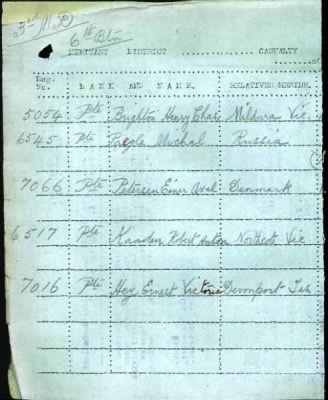 3rd M.D
6th Btn
MILITARY DISTRICT CASUALTY
Reg. No. RANK AND NAME. RELATIVES RESIDE
5054 Pte Henry Chas Mildura Vic.
6545 Pte Michal Russia
7066 Pte Petersen Einer Axel Denmark
6517 Pte Robert Northcote Vic
7016 Pte Hay Ernest Victoria Devonport Tas